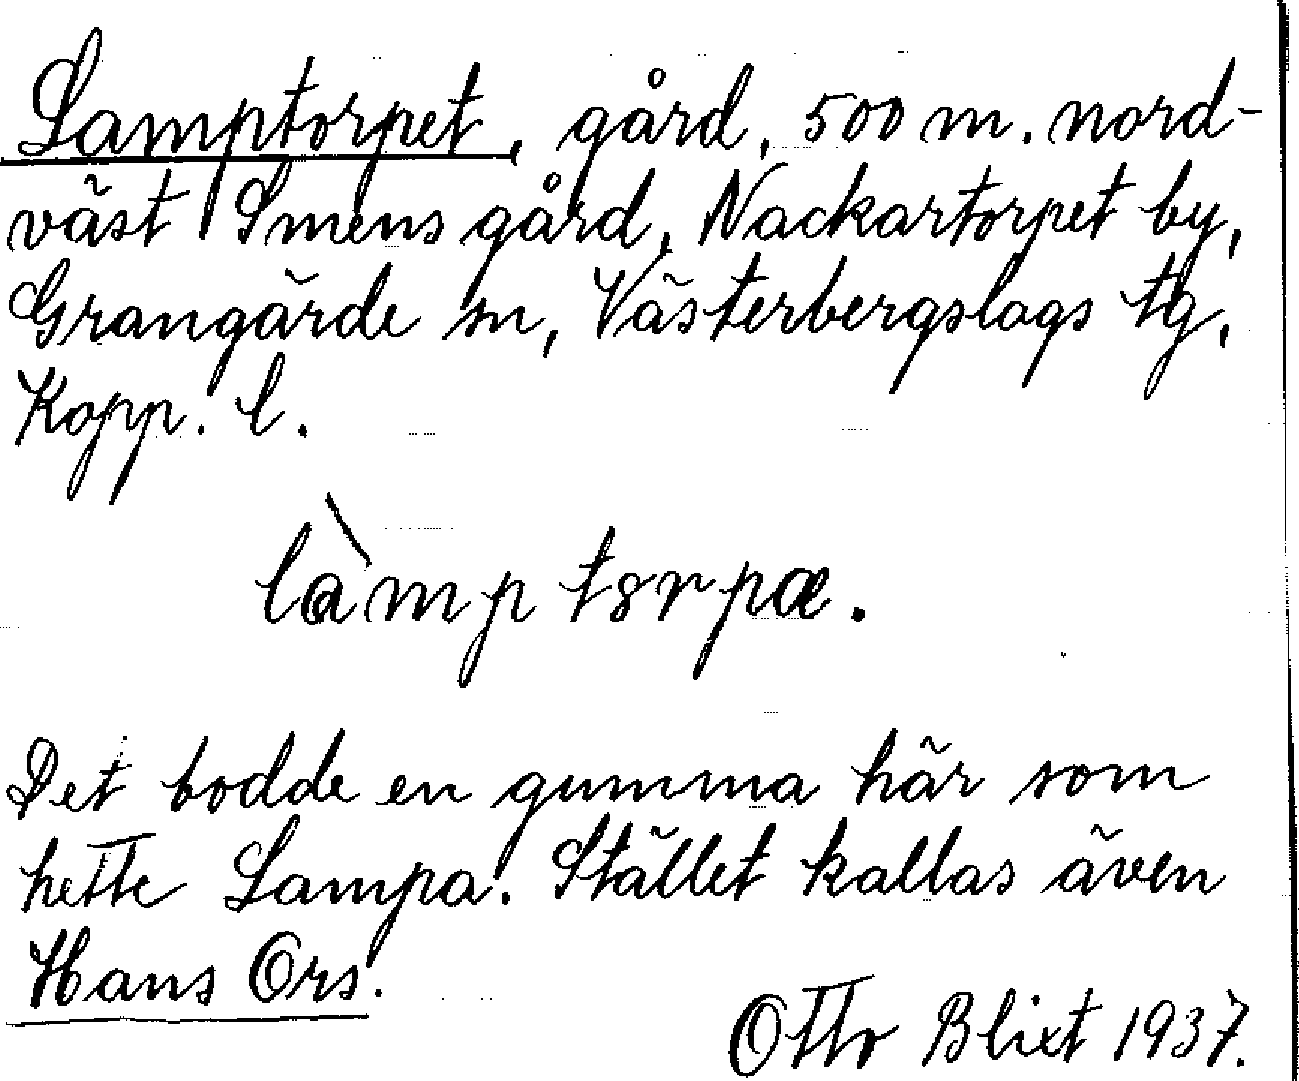 Lamptorpet, gård, 500 m. nord-
väst Smens gård, Nackartorpet by,
Grangärde sn, Västerbergslags tg,
Kopp. l.
làmptɜrpæ.
Det bodde en gumma här som
hette Lampa. Stället kallas även
Hans Ors.
Otto Blixt 1937.